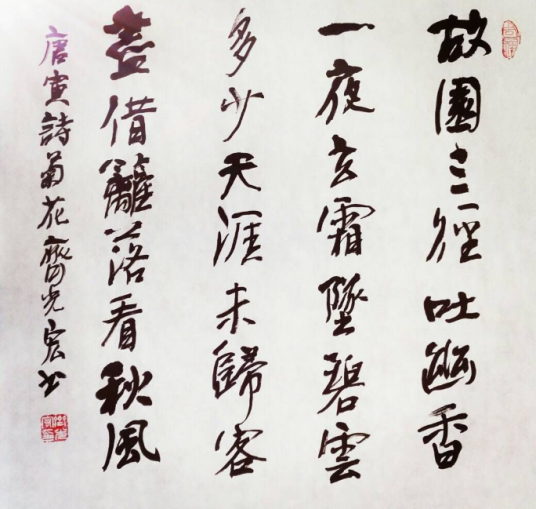 故園三徑吐幽香
一夜玄霜墜碧雲
多少天涯未歸客
盡借籬落看秋風
唐寅詩菊花齊光宏书